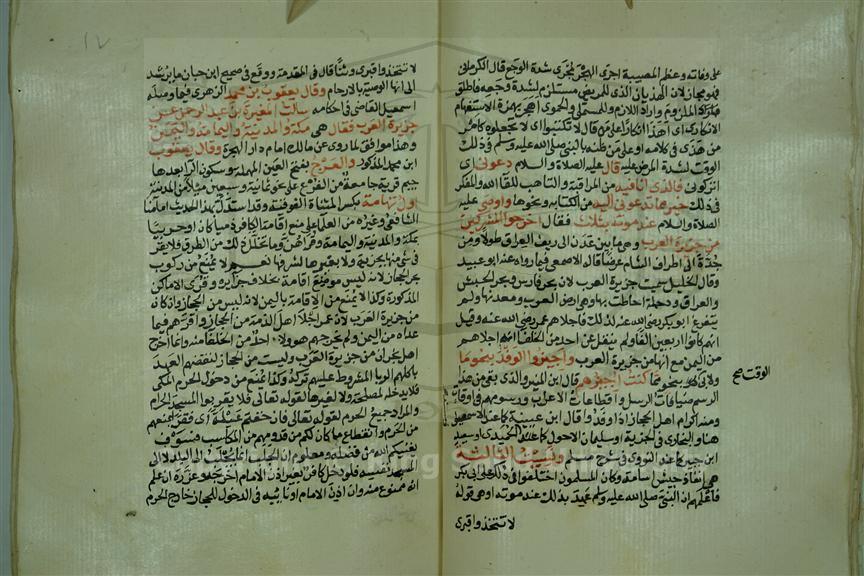 على وفاته وعظم المصيبة اجرى الهجر مجرى شدة الوجع قال الكرماني
فهو مجاز لان الهذيان الذي للمريض مستلزم لشدة وجعه فاطلق
الملزوم واراد اللازم وللمستملي والحموي اهجر بهمزة الاستفهام
الانكاري اي اهذا انكار على من قال لا تكتبوا اي لا تجعلوه كامر
من هذى في كلامه او على من ظنه بالنبي صلى الله عليه وسلم في ذلك
الوقت لشدة المرض عليه قال عليه الصلاة والسلام دعوني اي
اتركوني فالذي انا فيه من المراقبة والتاهب للقاء الله والفكر
في ذلك خير مما تدعوني اليه من الكتابة ونحوها واوصى عليه
الصلاة والسلام عند موته بثلاث فقال اخرجوا المشركين
من جزيرة العرب وهي ما بين عدن الى ريف العراق طولا ومن
جدة الى اطراف الشام عرضا قاله الاصمعي فيما رواه عنه ابو عبيد
وقال الخليل سميت جزيرة العرب لان بحر فارس وبحر الحبش
والعراق ودجلة احاطت بها وهي ارض العرب ومعدنها ولم
يتفرغ ابو بكر رضي الله عنه لذلك فاجلاهم عمر رضي الله عنه وقيل
انهم كانوا اربعين الفا ولم ينقل عن احد من الخلفا انه اجلاهم
من اليمن مع انها من جزيرة العرب واجيزوا الوفد بنحو ما
كنت اجيزهم قال ابن المنير والذي بقي من هذا
الرسم ضيافات الرسل واقطاعات الاعراب ورسومهم في اوقات
ومنه اكرام اهل الحجاز اذا وفدوا قال ابن عيينة كما عند الاسمعيلي
هنا والبخاري في الجزية او سليمان الاحول كما عند الحميدي او سعيد
ابن جبير كما عند النووي في شرح مسلم ونسيت الثالثة
هي انفاذ جيش اسامة وكان المسلمون اختلفوا في ذلك على ابي بكر
فاعلمهم ان النبي صلى الله عليه وسلم عهد بذلك عند موته او هي قوله
لا تتخذوا قبري
الوقت صح
لا تتخذوا قبري وثنا قال في المقدمة ووقع في صحيح ابن حبان ما يرشد
الى انها الوصية بالارحام وقال يعقوب بن محمد الزهري فيما وصله
اسمعيل القاضي في احكامه سالت المغيرة بن عبد الرحمن عن
جزيرة العرب فقال هي مكة والمدينة واليمامة واليمن
وهذا موافق لما روي عن مالك امام دار الهجرة وقال يعقوب
ابن محمد المذكور والعرج بفتح العين المهملة وسكون الرا بعدها
جيم قرية جامعة من الفرع على نحو ثمانية وسبعين ميلا من المدينة
اول تهامة بكسر المثناة الفوقية وقد استدل بهذا الحديث امامنا
الشافعي وغيره من العلما على منع اقامة الكافر ذميا كان او حربيا
بمكة والمدينة واليمامة وقراهن وما تخلل ذلك من الطرق فلا يقر
في شي منها بجزية ولا بغيرها لشرفها نعم لا يمنع من ركوب
بحر الحجاز لانه ليس موضع اقامة بخلاف جزايره وقرى الاماكن
المذكورة وكذا لا يمنع من الاقامة باليمن لانه ليس من الحجاز وان كان
من جزيرة العرب لان عمر اجلا اهل الذمة من الحجاز واقرهم فيما
عداه من اليمن ولم يخرجهم هو ولا احد من الخلفا منه وانما اخرج
اهل نجران من جزيرة العرب وليست من الحجاز لنقضهم العهد
باكلهم الربا المشروط عليهم تركه وكذا يمنع من دخول الحرم المكي
فلا يدخله لمصلحة ولا لغيرها لقوله تعالى فلا يقربوا المسجد الحرام
والمراد جميع الحرم لقوله تعالى فان خفتم عيلة اي فقرا بمنعهم
من الحرم وانقطاع ما كان لكم من قدومهم من المكاسب فسوف
يغنيكم الله من فضله ومعلوم ان الجلب انما يجلب الى البلد لا الى
المسجد نفسه فلو دخل كافر بغير اذن الامام اخرجه وعزره ان علم
انه ممنوع منه وان اذن الامام او نايبه في الدخول للحجاز خارج الحرم